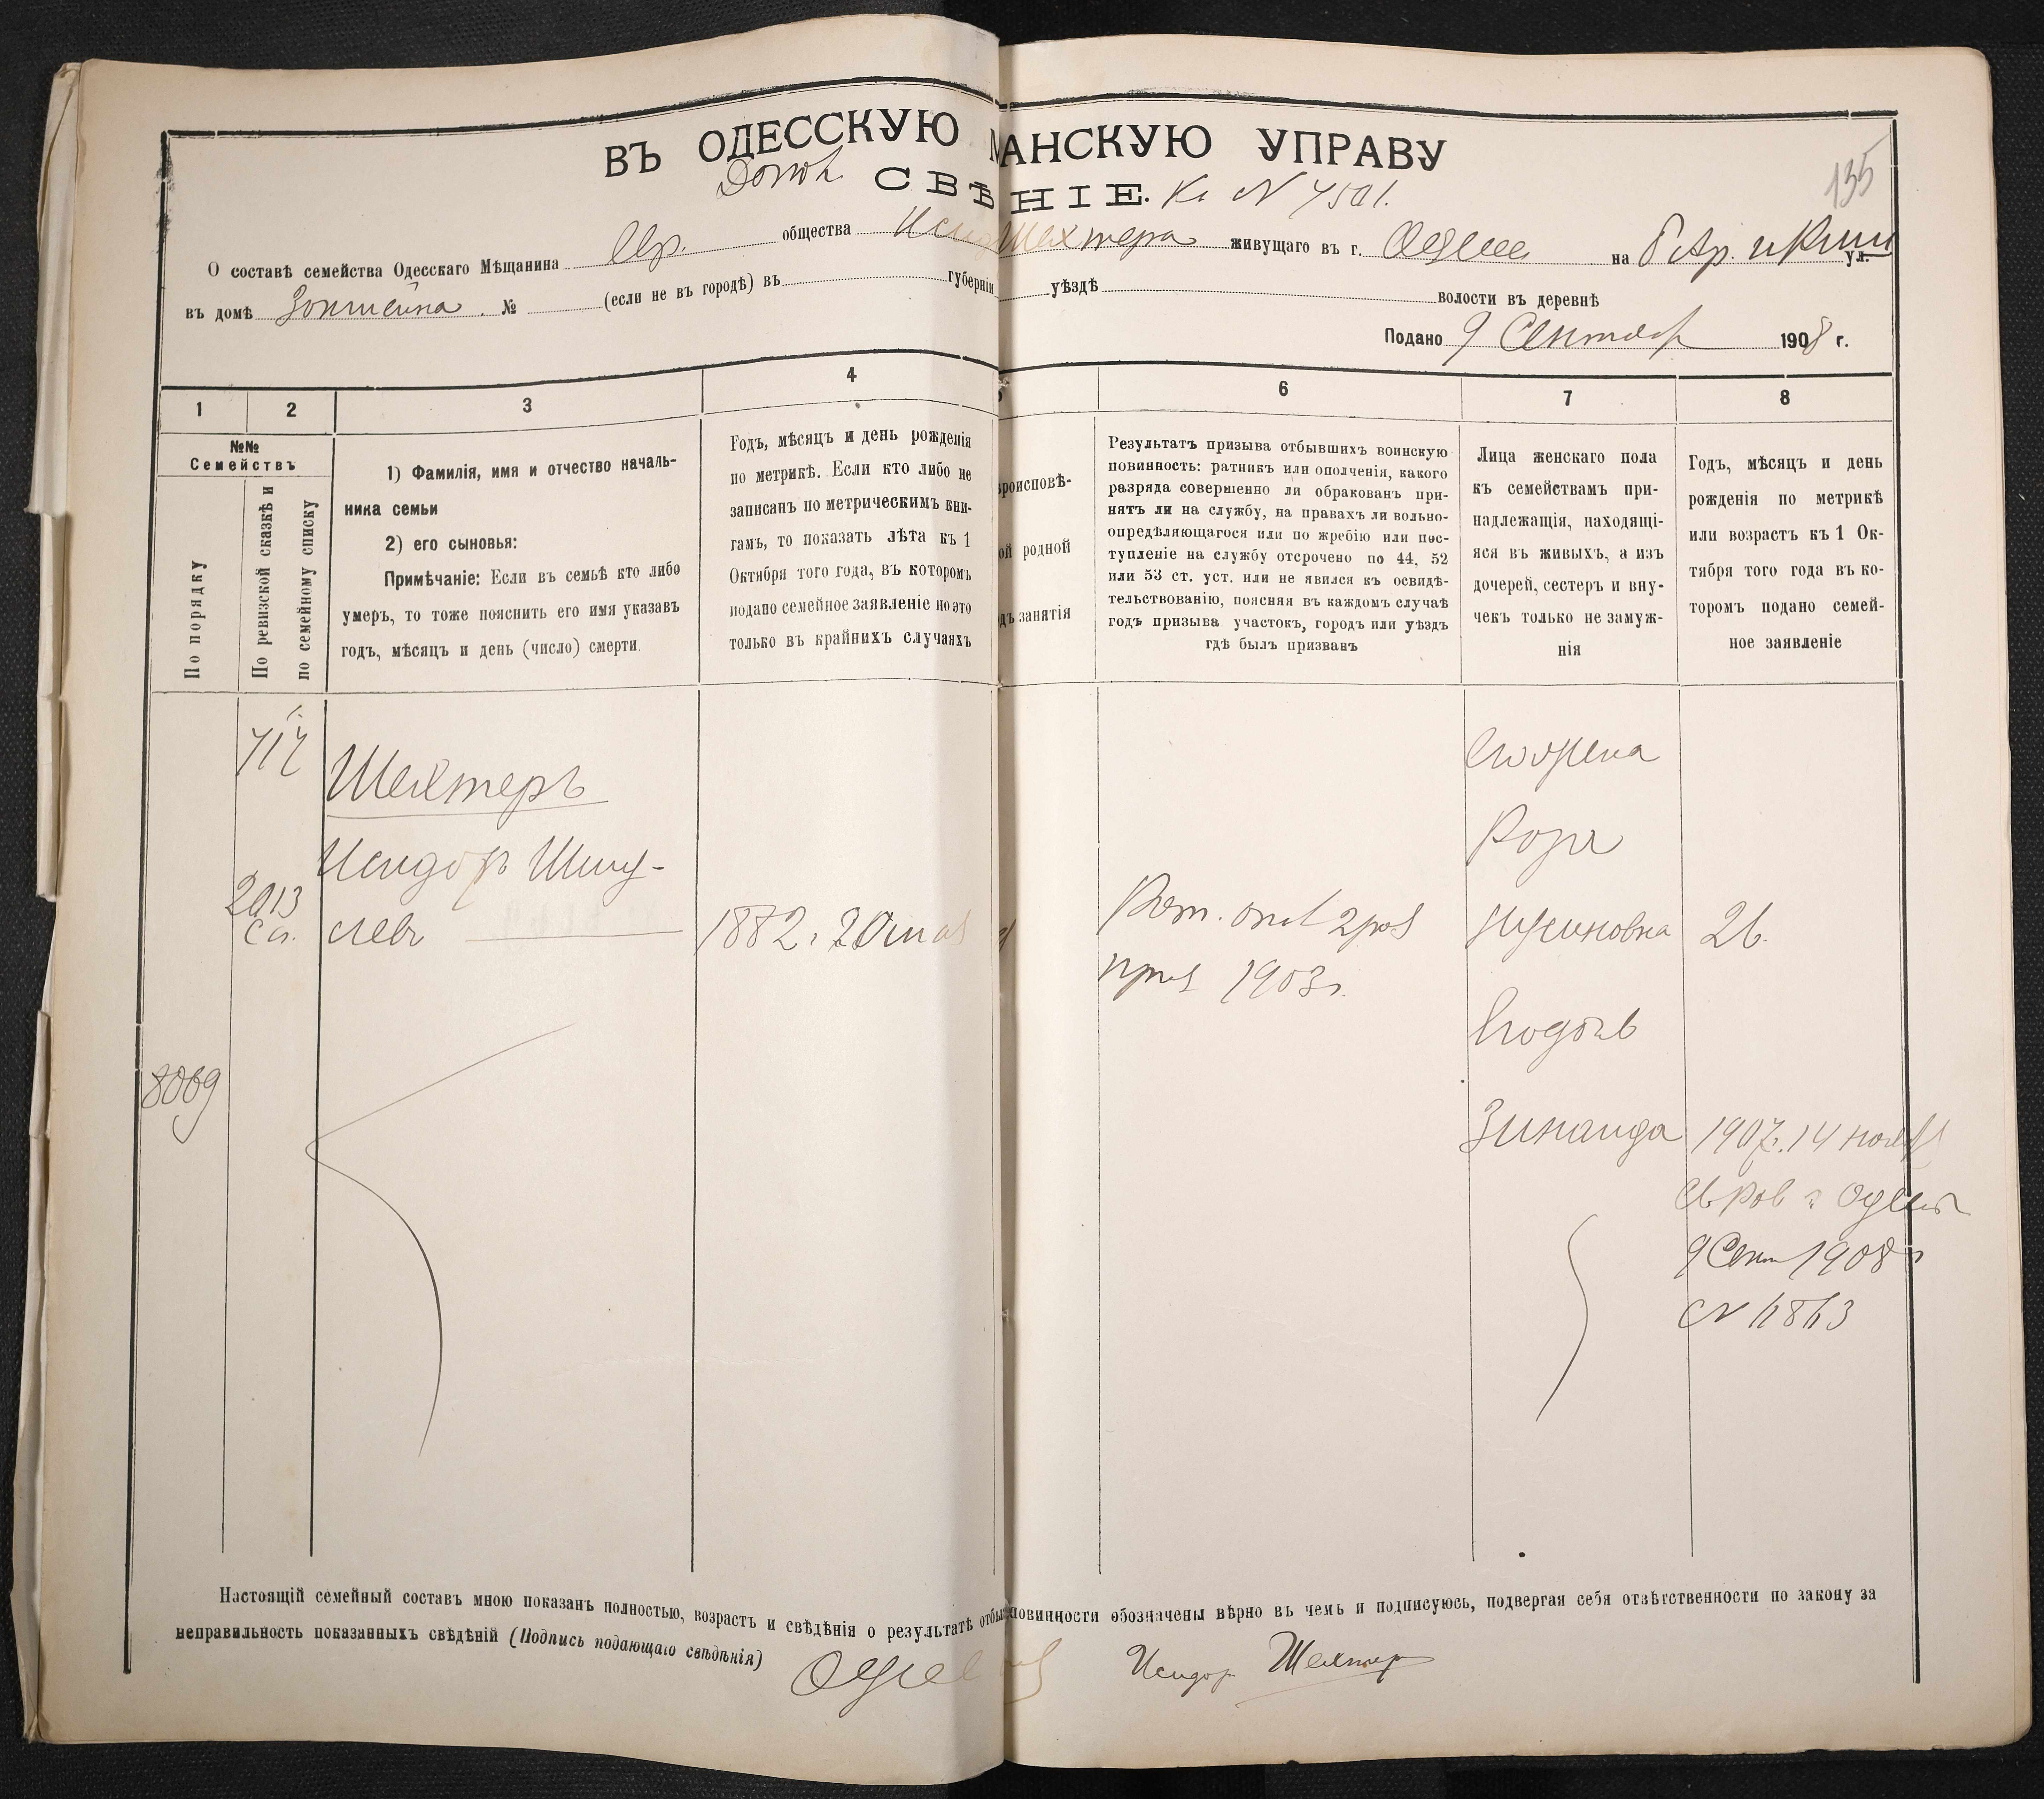 ВЪ ОДЕССКУЮ МАНСКУЮ УПРАВУ
135
СВѢНІЕ. Къ № 7501.
О составѣ семейства Одесскаго Мѣщанина Евр. общества Исид Шехтера живущаго въ г. Одессе на ул.
въ домѣ № (если не въ городѣ) въ губерніи уѣздѣ волости въ деревнѣ
Подано 9 Сентябр 1908 г.
1 2 3 4 6 7 8
№№ Семействъ
По порядку
По ревизской сказкѣ и
по семейному списку
1) Фамилія, имя и отчество началь-
ника семьи
2) его сыновья:
Примѣчаніе: Если въ семьѣ кто либо
умеръ, то тоже пояснить его имя указавъ
годъ, мѣсяцъ и день (число) смерти.
Годъ, мѣсяцъ и день рожденія
по метрикѣ. Если кто либо не
записанъ по метрическимъ кни-
гамъ, то показать лѣта къ 1
Октября того года, въ которомъ
подано семейное заявленіе но это
только въ крайнихъ случаяхъ
роисповѣ-
ой родной
дъ занятія
Результатъ призыва отбывшихъ воинскую
повинность: ратникъ или ополченія, какого
разряда совершенно ли обракованъ при-
нятъ ли на службу, на правахъ ли вольно-
опредѣляющагося или по жребію или пос-
тупленіе на службу отсрочено по 44, 52
или 53 ст. уст. или не явился къ освидѣ-
тельствованію, поясняя въ каждомъ случаѣ
годъ призыва участокъ, городъ или уѣздъ
гдѣ былъ призванъ
Лица женскаго пола
къ семействамъ при-
надлежащія, находящі-
яся въ живыхъ, а изъ
дочерей, сестеръ и вну-
чекъ только не замуж-
нія
Годъ, мѣсяцъ и день
рожденія по метрикѣ
или возрастъ къ 1 Ок-
тября того года въ ко-
торомъ подано семей-
ное заявленіе
717
Шехтеръ
Исидоръ Шму-
2013
Сп. левъ
1882 г. 20 мая
Рат. опол 2 раз
приз 1903 г.
его жена
Роза
Нусиновна 26.
его дочь
8069
Зинаида 1907 г. 14 нояб
Св Рав г Одессы
9 Сент 1908 г
Настоящій семейный составъ мною показанъ полностью, возрастъ и свѣдѣнія о результатѣ отбы повинности обозначены вѣрно въ чемъ и подписуюсь, подвергая себя отвѣтственности по закону за
неправильность показанныхъ свѣдѣній (Подпись подающаго свѣдѣнія)
Исидор Шехтер